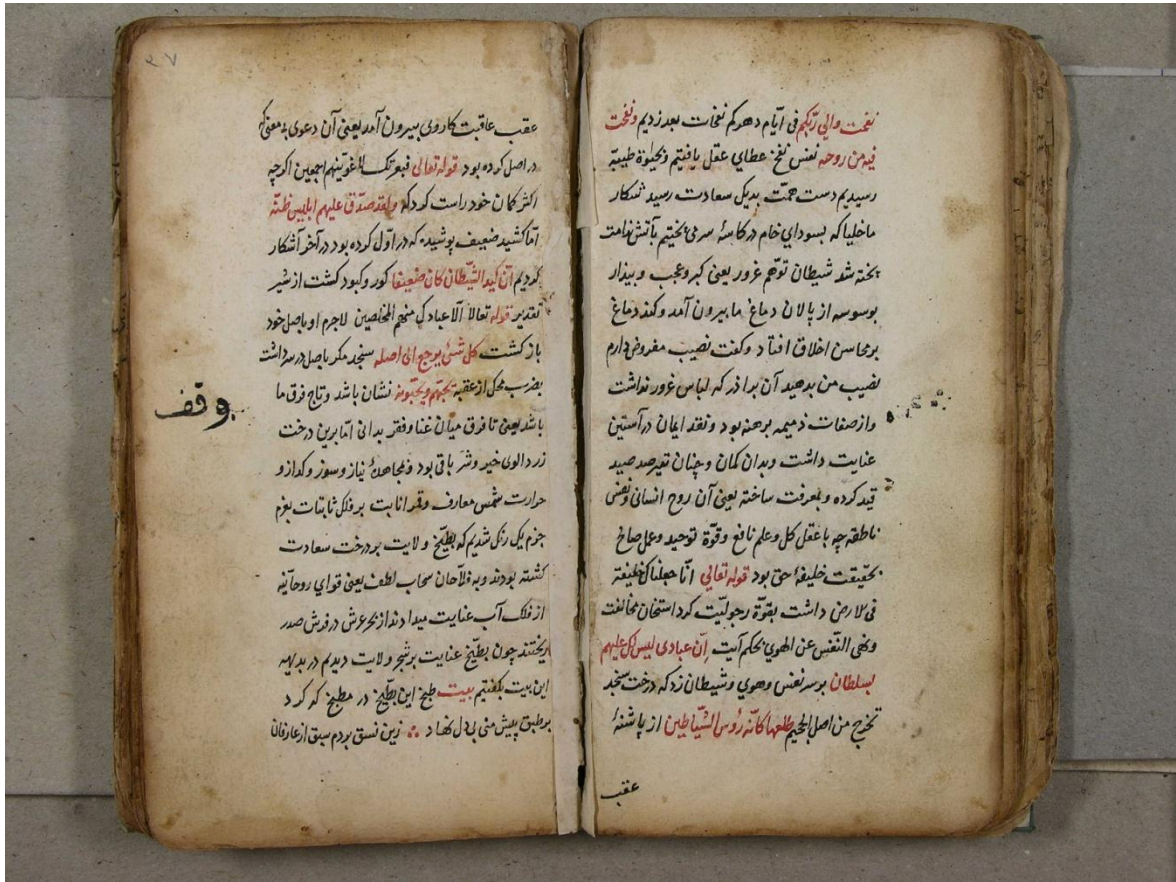 نفحت والی ربکم فی ایّام دهرکم نفحات بعد زدیم ونفخت
فیه من روحه نفس نفخ عطای عقل یافتیم وبحیوة طیبّه
رسیدیم دست همّت بدیک سعادت رسید شکار
ماخلیا که بسودای خام در کاسۀ سر می بختیم بآتش ندامت
بخته شد شیطان توهّم غرور یعنی کبر وعجب و بیذار
بوسوسه از پالان دماغ ما بیرون آمد وکند دماغ
بر محاسن اخلاق افتاد وکفت نصیب مفروض دارم
نصیب من بدهید آن براذر که لباس غرور نداشت
واز صفات ذمیمه برهنه بود ونقد ایمان در آستین
عنایت داشت وبدان کمان وچنان تیر صد صید
قید کرده وبمعرفت ساخته یعنی آن روح انسانی ونفس
ناطقه چه با عقل کل وعلم نافع وقوّة توحید وعمل صالح
بحقیقت خلیفۀ حق بود قوله تعالی انّا جعلناک خلیفة
فی لارض داشت بقوّة رجولیّت کرد استخان مخالفت
ونهی النّفس عن الهوی بحکم آیت اِنّ عبادی لیس لک علیهم
بسلطان بر سر نفس وهوی وشیطان زد که درخت سنجد
تخرج من اصل الجحیم طلعها کانّه رؤس الشّیاطین از پاشنۀ
عقب
۳۷
عقب عاقبت کار وی بیرون آمد یعنی آن دعوی بمعنی که
در اصل کرده بود قوله تعالی فبعزتک لاغوینّهم اجمعین اکرچه
اکثر کمان خود راست کرد که ولقد صدّق علیهم ابلیس ظنّه
امّا کشید ضعیف پوشیده که در اوّل کرده بود در آخر آشکار
کردیم انّ کید الشّیطان کان ضعیفا کور وکبود کشت از شیر
تقدیر قوله تعالا الّا عبادک منهم المخلصین لاجرم او باصل خود
باز کشت کل شیٔ یرجع الی اصله سنجد مکر باصل در سر داشت
بضرب محکّ از عقبه یحبّهم ویحبّونه نشان باشد وتاج فرق ما
باشد یعنی تا فرق میان غنا وفقر بدانی امّا برین درخت
زردالوی خیر وشر باقی بود ومجاهدۀ نیاز وسوز وکداز و
حرارت شمس معارف وقمر انابت بر فلک ثابتات بعزم
جزم یک رنک شدیم که بطّیخ ولایت بر درخت سعادت
کشته بودند وبه فلّاحان سحاب لطف یعنی قوای روحانیّه
از فلک آب عنایت میدادند از بحر عش در فرش صدر
ریختند چون بطّیخ عنایت بر شجر ولایت دیدیم در بدیهه
این بیت بکفتیم بیت طبخ این بطّیخ در مطبخ که کرد
بر طبق پیش منی بی دل نهاد ∴ زین نسق بردم سبق از عارفان
وقف